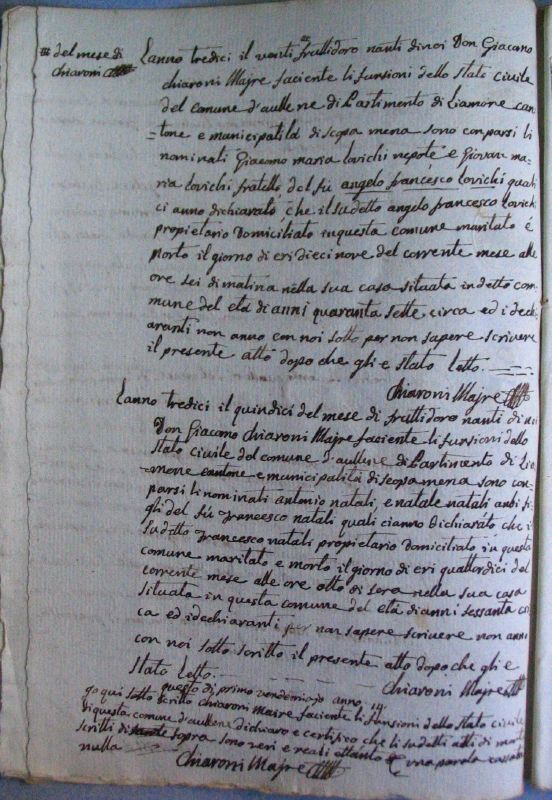 ### del mese di
chiaroni
L'anno tredici il venti ### fruttidoro nanti di noi Don Giacano
chiaroni Majre faciente li funsioni dello Stato civile
del comune d'aullene di Partimento di Liamone can
=tone e municipalità di scopa mena sono conparsi li
nominati Giacomo maria lovichi nepote e Giovan ma-
ria lovichi fratello del fù angelo francesco lovichi quali
ci anno dichiarato che il sudetto angelo francesco lovichi
propietario Domiciliato in questa comune maritato é
morto il giorno di eri dieci nove del corrente mese alle
ore sei di matina nella sua casa situata in detto com-
mune del età di anni quaranta sette circa ed i dechi
aranti non anno con noi sotto per non sapere scrivere
il presente atto dopo che gli e stato letto.
Chiaroni Majre
L'anno tredici il quindici del mese di fruttidoro nanti di noi
Don Giacano Chiaroni Majre faciente li funsioni dello
Stato civile del comune d'aullene di Partimento di Lia-
mone cantone e municipalità di scopa mena sono con-
parsi li nominati antonio natali, e natale natali anbi fi-
gli del fù francesco natali quali ci anno dichiarato che il
sudetto francesco natali propietario Domiciliato in questa
comune maritato e morto il giorno di eri quattordici del
corrente mese alle ore otto di sera nella sua casa
situata in questa comune del età di anni sessanta cir
ca ed i dechiaranti per non sapere scrivere non anno
con noi sotto scritto il presente atto dopo che gli e
stato letto.
Chiaroni Majre
questo di primo vendemiajo anno 14.
qui sotto scritto chiaroni maire faciente li funsioni dello Stato civile
di questa comune d'aullene dichiaro e certifico che li sudetti atti di morte
scritti di sopra sono veri e reali una parola cassata
nulla
Chiaroni Majre